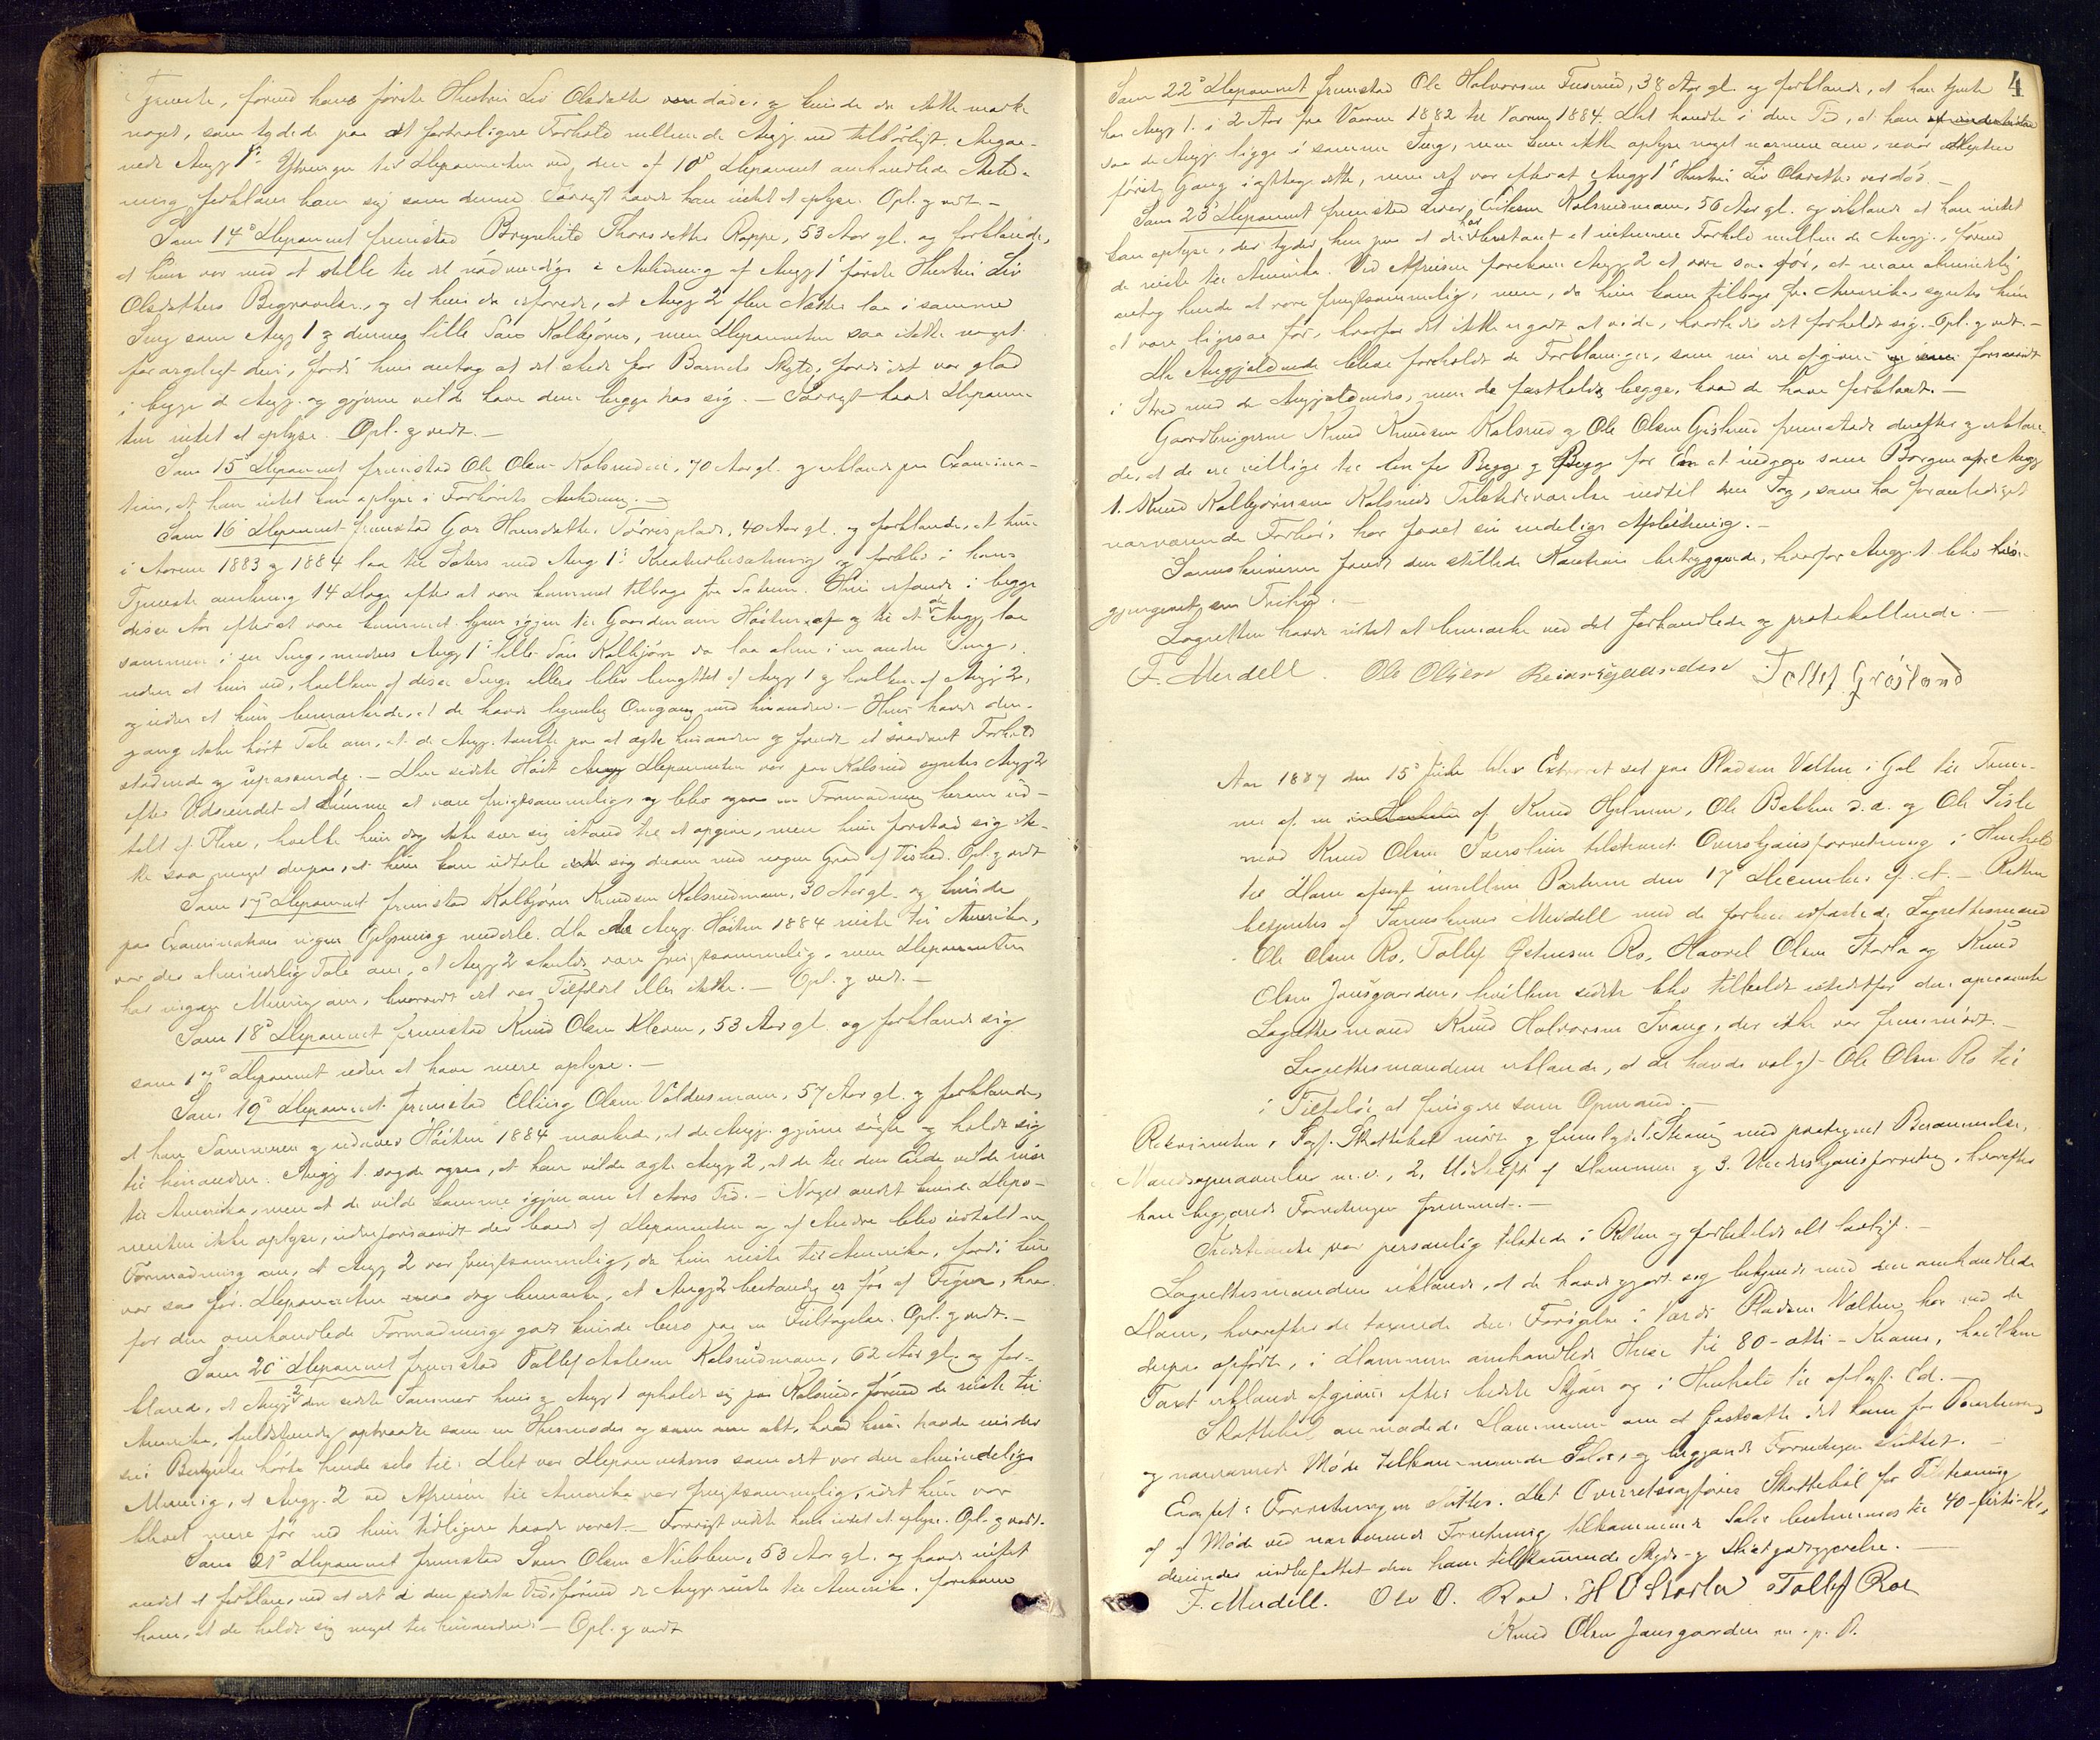 Tjeneste, førend hans første Hustru Liv Olsdatter var död, og kunde da ikke mærke
noget, som tydede paa et fortroligere Forhold mellem de Angj. end tilbörligt. Angaa-
ende Angj. 1s Yttringer til Deponenten ved den af 10de Deponent omhandlede
forklarer han sig som denne. Forövrigt havde han intet at oplyse. Opl. g vedt. –
Som 14de Deponent fremstod Brynhild Thorsdatter Roppe, 53 Aar gl. og forklarede,
at hun var med at stelle til det nödvendige i Anledning af Angj. 1s første Hustru Liv
Olsdatters Begravelse, og at hun da erfarede, at Angj. 2 flere Nætter laa i samme
Seng som Angj. 1 og dennes lille Sön Kolbjörn, men Deponenten saa ikke noget
forargeligt deri, fordi hun antog at det skede for Barnets Skyld, fordi det var glad
i begge de Angj. og gjerne vilde have dem begge hos sig. – Forövrigt havde Deponen-
ten intet at oplyse. Opl. g vedt. –
Som 15de Deponent fremstod Ole Olsen Kolsrudeie, 70 Aar gl. og erklærede paa Examina-
tion, at han intet kan oplyse i Forhörets Anledning. –
Som 16de Deponent fremstod Gro Hansdatter Törresplads, 40 Aar gl. og forklarede, at hun
i Aarene 1883 og 1884 laa til Sæters med Angj. 1s Kreaturbesætning og forblev i hans
Tjeneste omkring 14 Dage efter at være kommet tilbage fra Sæteren. Hun erfarede i begge
disse Aar efterat være kommet hjem igjen til Gaarden om Hösten og til at de Angj. laa
sammen i en Seng, medens Angj. 1s lille Sön Kolbjörn da laa alene i en anden Seng,
uden at hun ved, hvilken af disse Senge ellers blev benyttet af Angj. 1 og hvilken af Angj. 2,
og uden at hun bemærkede, at de havde legemlig Omgang med hinanden. – Hun havde den-
gang ikke hört Tale om, at de Angj. tænkte paa at ægte hinanden og fandt et saadant Forhold
stödende og upassende. – Den sidste Höst Deponenten var paa Kolsrud syntes Angj. 2
efter Udseendet at dömme at være frugtsommelig og blev ogsaa en Formodning herom ud-
talt af Flere, hvilke hun dog ikke ser sig istand til at opgive, men hun forstod sig ik-
ke saa meget derpaa, at hun kan udtale sig derom med nogen Grad af Vished. Opl. g vedt
Som 17de Deponent fremstod Kolbjörn Knudsen Kolsrudmoen, 30 Aar gl. og kunde
paa Examination ingen Oplysning meddele. Da de Angj. Hösten 1884 reiste til Amerika,
var der almindelig Tale om, at Angj. 2 skulde være frugtsommelig, men Deponenten
har ingen Mening om, hvorvidt det var Tilfældet eller ikke. – Opl. g vedt. –
Som 18de Deponent fremstod Knud Olsen Kleven, 53 Aar gl. og forklarede sig
som 17de Deponent uden at have mere oplyse. –
Som 19de Deponent fremstod Elling Olsen Voldesmoen, 57 Aar gl. og forklarede,
at han Sommeren og udover Hösten 1884 mærkede, at de Angj. gjerne sögte og holdt sig
til hinanden. Angj. 1 sagde ogsaa, at han vilde ægte Angj. 2, at de til den Ende vilde reise
til Amerika, men at de vilde komme igjen om et Aars Tid. – Noget andet kunde Depo-
nenten ikke oplyse, uden forsaavidt der baade af Deponenten og af Andre blev udtalt en
Formodning om, at Angj. 2 var frugtsommelig, da hun reiste til Amerika, fordi hun
var saa før. Deponenten maa dog bemærke, at Angj. 2 bestandig er før af Figur, hvor-
for den omhandlede Formodning godt kunde bero paa en Feiltagelse. Opl. g vedt. –
Som 20de Deponent fremstod Tollef Kolsrudmoen, 62 Aar gl. og for-
klarede, at Angj. 2 den sidste Sommer hun og Angj. 1 opholdt sig paa Kolsrud, førend de reiste til
Amerika, fuldstændig optraadte som en Husmoder og som om alt, hvad hun havde under
sin Bestyrelse hörte hende selv til. Det var Deponentens som det var den almindelige
Mening, at Angj. 2 ved Afreisen til Amerika var frugtsommelig, idet hun var
blevet mere før end hun tidligere havde været. – Forövrigt vidste han intet at oplyse. Opl. g vedt.
Som 21de Deponent fremstod Olsen 53 Aar gl. og havde intet
andet at forklare, end at det i den sidste Tid, førend de Angj. reiste til Amerika, forekom
ham, at de holdt sig meget til hinanden. – Opl. g vedt
4
Som 22de Deponent fremstod Ole Halvorsen Tuserud, 38 Aar gl. og forklarede, at han tjente
hos Angj. 1 i 2 Aar fra Vaaren 1882 til Vaaren 1884. Det hændte i den Tid, at han
saa de Angj. ligge i samme Seng, men kan ikke oplyse noget nærmere om, naar Deponenten
förste Gang iagttog dette, men det var efterat Angj. 1s Hustru Liv Olsdatter var död. –
Som 23de Deponent fremstod Iver Eriksen Kolsrudmoen, 56 Aar gl. og erklærede at han intet
kan oplyse, der tyder hen paa at der har bestaaet et intimere Forhold mellem de Angj., førend
de reiste til Amerika. Ved Afreisen forekom Angj. 2 at være saa før, at man almindelig
antog hende at være frugtsommelig, men, da hun kom tilbage fra Amerika, syntes hun
at være ligesaa før, hvorfor det ikke er godt at vide, hvorledes det forholdt sig. Opl. g vedt. –
De Angjældende bleve foreholdt de Forklaringer, som nu ere afgivne forsaavidt
i Strid med de Angjældendes, men de fastholdt begge, hvad de have forklaret. –
Gaardbrugerne Knud Knudsen Kolsrud og Ole Olsen Gislerud fremstode derefter og erklære-
de, at de ere villige til En for Begge og Begge for En at indgaa som Borgen for Angj.
1. Knud Kolbjörnsen Kolsruds Tilstedeværelse indtil den Sag, som har foranlediget
nærværende Forhör, har faaet sin endelige Afslutning. –
Sorenskriveren fandt den stillede Kaution betryggende, hvorfor Angj. 1 blev
gjengivet sin Frihed. –
Lagretten havde intet at bemærke ved det forhandlede og protokollerede. –
F. Mendell. Ole Olsen Tollef Gröslond
Aar 1887 den 15de Juli blev Extraret sat paa Pladsen Vælten i Gol til Frem-
me af en af Knud Hjelmen, Ole Bakken d.æ. og Ole Sisle
mod Knud Olsen tilstævnt Overskjönsforretning i Henhold
til Dom afsagt imellem Parterne den 17de December f. A. – Retten
betjentes af Sorenskriver Mendell med de forhen edfæstede Lagrettesmænd
Ole Olsen Ro, Tollef Ro, Haavel Olsen Storla og Knud
Olsen Jansgaarden, hvilken sidste blev tilkaldt istedetfor den opnævnte
Lagrettesmand Knud Halvorsen Svang, der ikke var fremmödt. –
Lagrettesmændene erklærede, at de havde valgt Ole Olsen Ro til
i Tilfælde at fungere som Opmand. –
Rekvirenten, Sagf. Skattebøl mödte og fremlagde 1. Stævning med paategnet Berammelse,
Mandsopnævnelse m.v., 2. Udskrift af Dommen og 3. Underskjönsforretning, hvorefter
han begjærede Forretningen fremmet. –
Indstævnte var personlig tilstede i Retten og forbeholdt alt lovligt. –
Lagrettesmændene erklærede, at de havde gjort sig bekjendt med den omhandlede
Dom, hvorefter de taxerede den Forøgelse i Værdi Pladsen Vælten har ved de
derpaa opførte, i Dommen omhandlede Huse til 80 – otti – Kroner, hvilken
Taxt erklæredes afgivet efter bedste Skjön og i Henhold til aflagt Ed. –
Skattebøl anmodede Dommeren om at fastsætte det ham for
og nærværende Möde tilkommende Salær, og begjærede Forretningen sluttet. –
Eragtet: Forretningen sluttes. Det Overretssagförer Skattebøl for Tilstævning
af og Möde ved nærværende Forretning tilkommende Salær bestemmes til 40 – førti – Kr.,
derunder indbefattet den ham tilkommende Skyds- og Diætgodtgjørelse. –
F. Mendell. Ole O. Roe. H O Storla Tollef Roe
Knud Olsen Jansgaarden m. p. P.